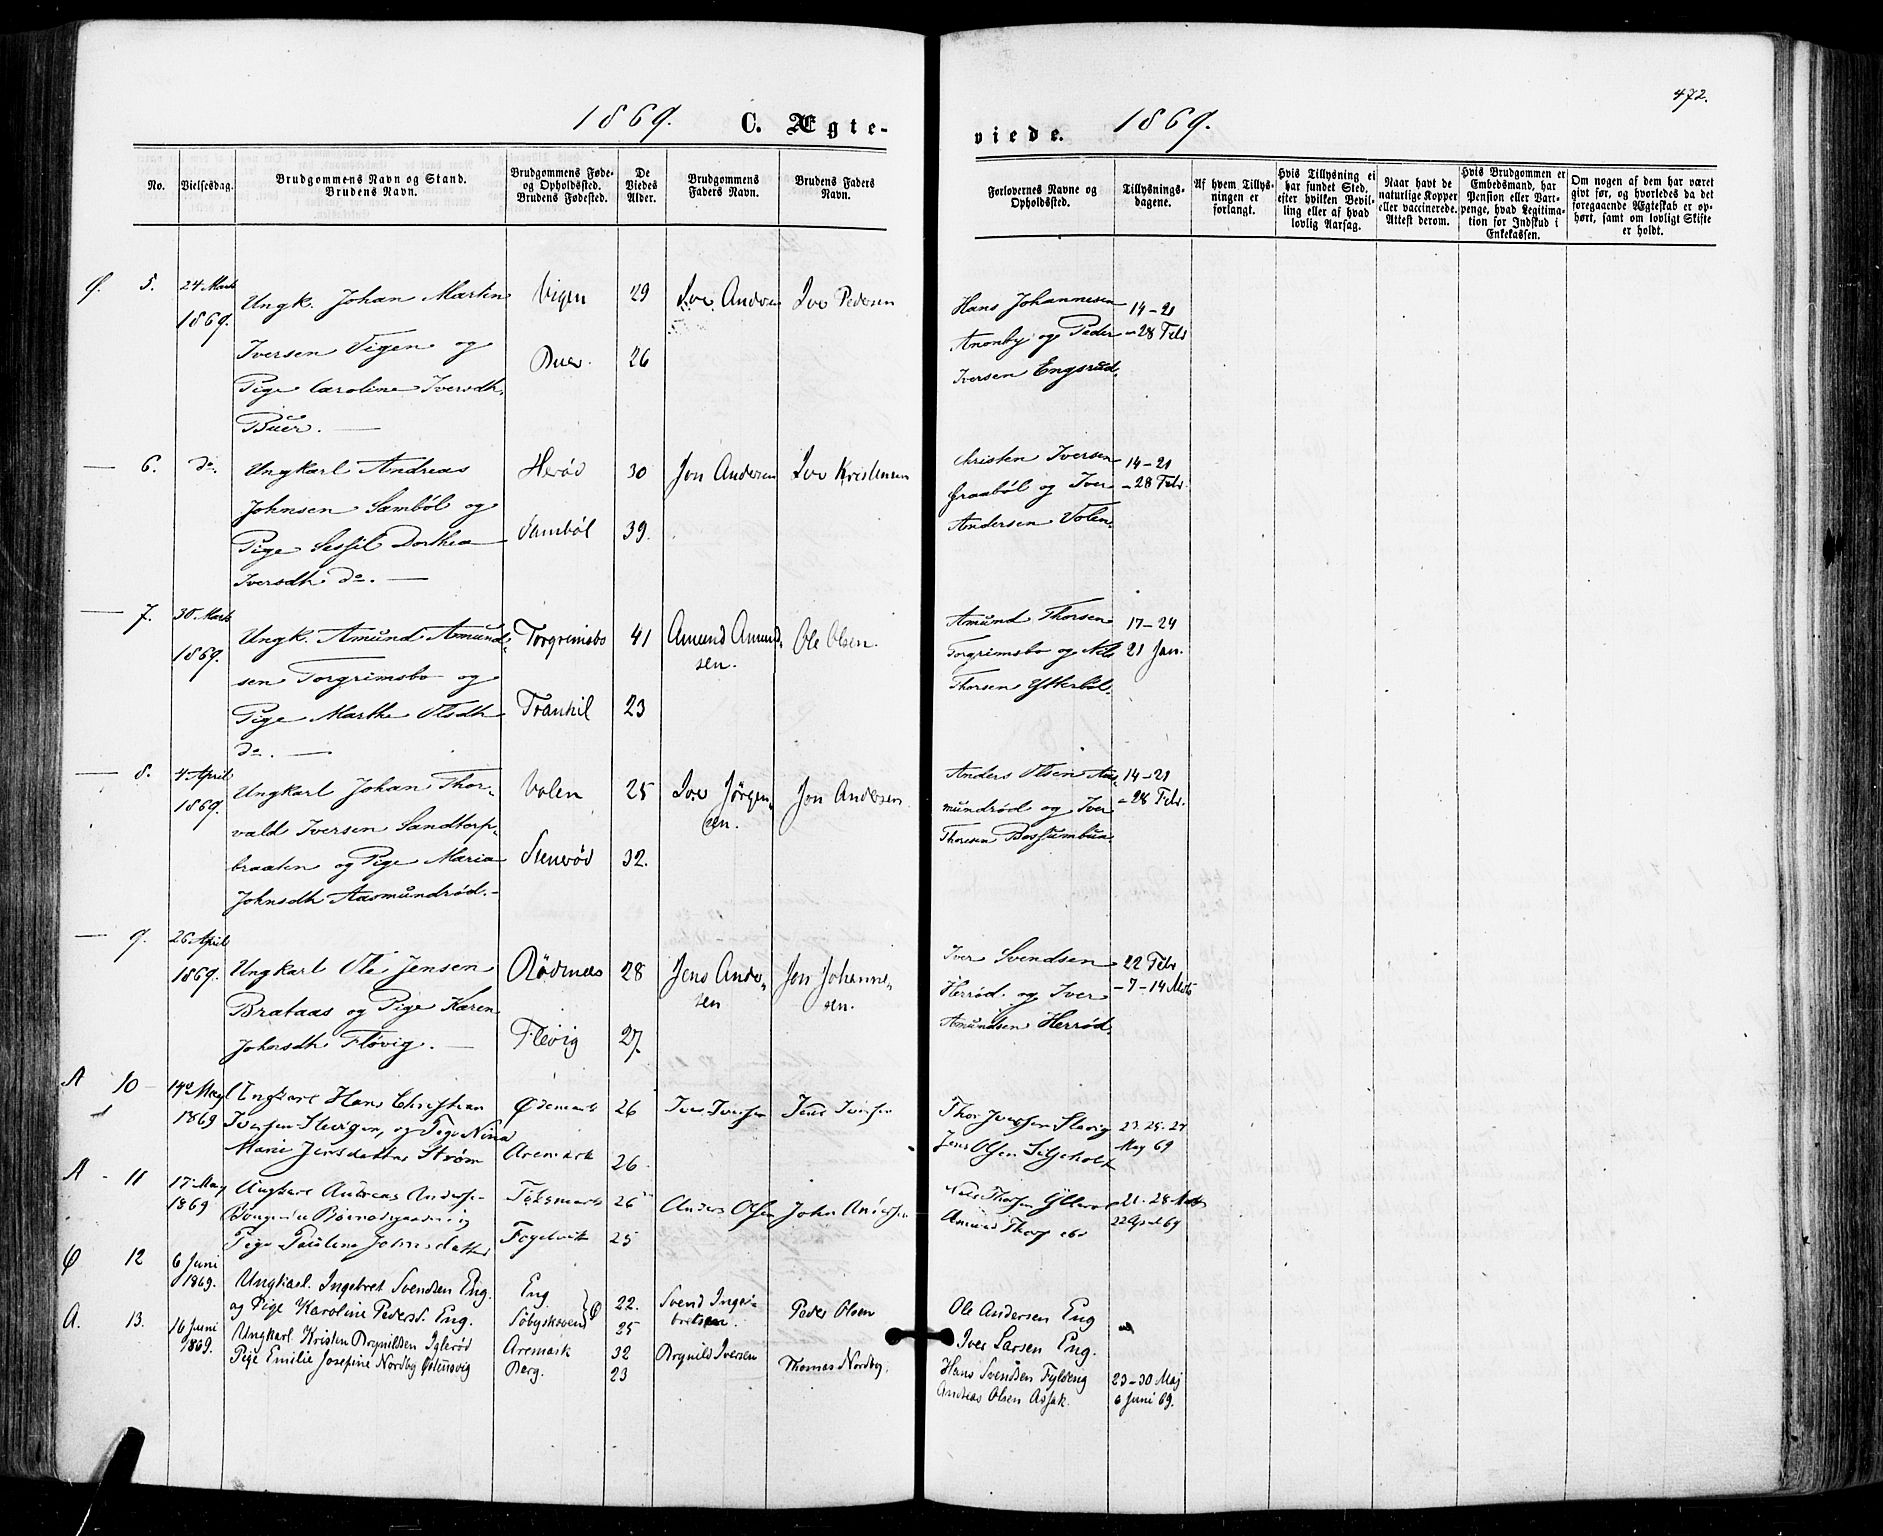 472.
1869. C. Ægte-
viede. 1869.
No.
Vielsesdag.
Brudgommens Navn og Stand.
Brudens Navn.
Brudgommens Føde-
og Opholdssted.
Brudens Fødested.
De
Viedes
Alder.
Brudgommens
Faders Navn.
Brudens Faders
Navn.
Forlovernes Navne og
Opholdssted.
Tillysnings-
dagene.
Af hvem Tillys-
ningen er
forlangt.
Hvis Tillysning ei
har fundet Sted,
efter hvilken Bevil-
ling eller af hvad
lovlig Aarsag.
Naar havt de
naturlige Kopper
eller vaccinerede.
Attest derom.
Hvis Brudgommen er
Embedsmand, har
Pension eller Vart-
penge, hvad Legitima-
tion for Indskud i
Enkekassen.
Om nogen af dem har været
givt før, og hvorledes da det
foregaaende Ægteskab er op-
hørt, samt om lovligt Skifte
er holdt.
Ø. 5. 24 Marts
1869.
Ungk. Johan Martin
Iversen Vigen og
Pige Caroline Iversdh.
Buer.
Vigen 29
Buer. 26
Iver Andersen
Iver Pedersen
Hans Johannesen
Anonby og Peder
Iversen Engsrud.
14-21
-28 Febr
— 6. do.
Ungkarl Andreas
Johnsen Sambøl og
Pige Sessil Dorthea
Iversdh do.
Herød 30
Sambøl 39.
Jon Andersen
Iver Kristensen
Christen Iversen
Graabøl og Iver
Andersen Volen.
14-21
-28 Febr.
— 7. 30 Marts
1869.
Ungk. Amund Amund-
sen Torgrimsbo og
Pige Marthe Olsdh
do.
Torgrimsbo 41
Trankil 23
Amund Amund-
sen.
Ole Olsen.
Amund Thorsen
Torgrimsbo og Nils
Thorsen Ytterbøl.
17-24
21 Jan.
— 8. 4 April
1869.
Ungkarl Johan Thor-
vald Iversen Sandtorp-
braaten og Pige Maria
Johnsdh Aasmundrød.
Volen 25
Stenrød 32.
Iver Jørgen-
sen.
Jon Andersen.
Anders Olsen Aas-
mundrød og Iver
Thoresen Bossumbua.
14-21
-28 Febr.
— 9. 26 April
1869.
Ungkarl Ole Jensen
Brataas og Pige Karen
Johnsdh Fløvig.
Rødnæs 28
Fløvig 27.
Jens Ander-
sen
Jon Johanne-
sen.
Iver Svendsen
Herrød. og Iver
Amundsen Herrød.
22 Febr
-7-14 Mts
A 10 14 May
1869
Ungkarl Hans Christian
Iversen og Pige Nina
Marie Jensdatter Strøm
Ødemark 26
Aremark 26.
Iver Iversen
Jens Iversen
Thor Iversen
Jens Olsen
23. 25. 27
May 69
A - 11 17 May
1869
Ungkarl Andreas Anders-
Pige Pauline Johnsdatter
26
Fogelvik 25
Anders Olsen
John Andersen
Nils Thorsen
Amund Thors
21. 28 Mts
22 April 69
Ø 12 6 Juni
1869.
Ungkarl. Ingebret Svendsen Eng.
og Pige Karoline Pedersd. Eng.
Eng 22.
Søbyskoven } Ø 25
Svend Inge-
bretsen.
Peder Olsen
Ole Andersen Eng
Iver Larsen Eng.
A. 13. 16 Juni
1869.
Ungkarl. Kristen Brynildsen Iglerød
Pige Emilie Josefine Nordby Østensvig
Aremark 32
Berg. 23
Brynild Iversen
Thomas Nordby.
Hans Svendsen Fyldeng
Andreas Olsen Aspak.
23-30 Maj
6 Juni 69.